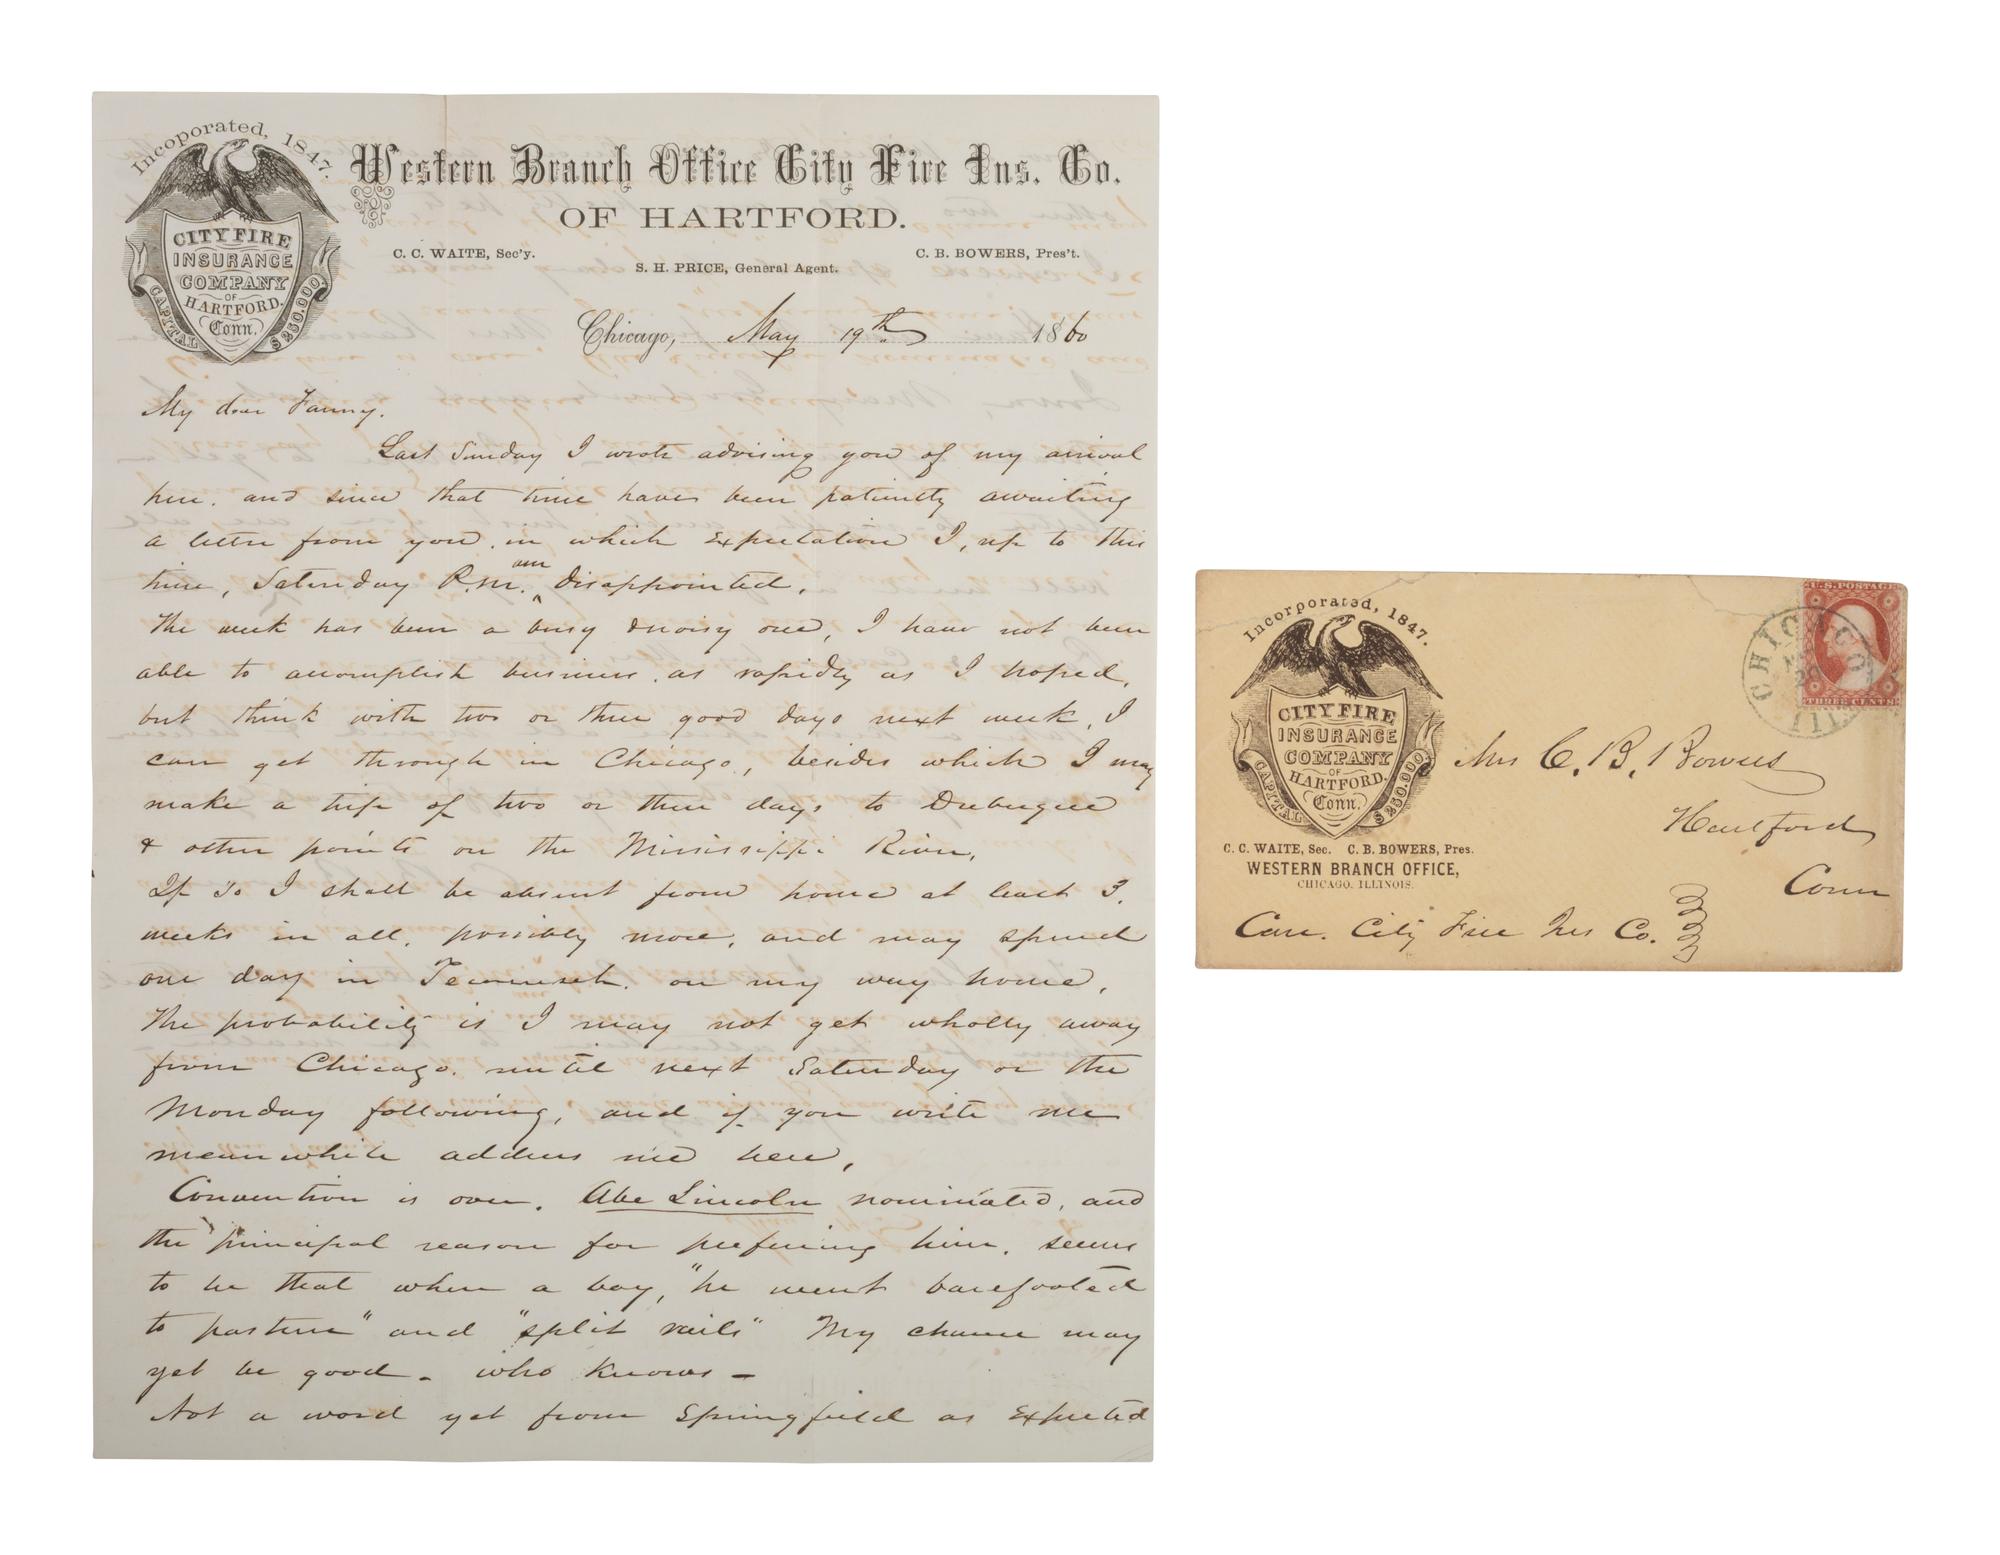 Incoporated, 1847.
CITY FIRE
INSURANCE
COMPANY
OF
HARTFORD.
Conn.
CAPITAL $250.000.
Western Branch Office City Fire Ins. Co.
OF HARTFORD.
C. C. WAITE, Sec'y.
C. B. BOWERS, Pres't.
S. H. PRICE, General Agent.
Chicago, May 19th 1860
My dear Fanny.
Last Sunday I wrote advising you of my arrival
here. and since that time have been patiently awaiting
a letter from you. in which expectation I, up to this
time, Saturday P.M. am disappointed.
The week has been a busy & noisy one, I have not been
able to accomplish business as rapidly as I hoped,
but think with two or three good days next week, I
can get through in Chicago, besides which I may
make a trip of two or three days to Dubuque
& other points on the Mississippi River.
If so I shall be absent from home at least 3.
weeks in all, possibly more, and may spend
one day in Tecumseh. on my way home.
The probability is I may not get wholly away
from Chicago. until next Saturday or the
Monday following, and if you write me
meanwhile address me here.
Convention is over. Abe Lincoln nominated, and
the principal reason for prefering him. seems
to be that when a boy, "he went barefooted
to pasture" and "split rails" My chance may
yet be good - who knows -
Not a word yet from Springfield as expected
Incorporated, 1847.
CITY FIRE
INSURANCE
COMPANY
OF
HARTFORD.
Conn.
CAPITAL $250.000.
C. C. WAITE, Sec. C. B. BOWERS, Pres.
WESTERN BRANCH OFFICE,
CHICAGO, ILLINOIS.
U.S. POSTAGE
THREE CENTS
CHICAGO
20
ILL
Mrs C. B. Bowers
Hartford
Conn
Care. City Fire Ins Co.